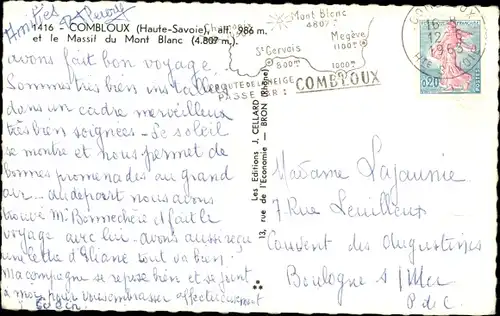 Amitiés
1416 - COMBLOUX (Haute-Savoie), alt. 986 m.
et le Massif du Mont Blanc (4.807 m.)
avons fait bon voyage
Sommes très bien installés
dans un cadre merveilleux
très bien soignées - Le soleil
se montre et nous permet de
bonnes promenades au grand
air - au départ nous avons
trouvé Mr Bonnechère et fait le
voyage avec lui - avons aussi reçu
une lettre d'Eliane tout va bien.
Ma compagne se repose bien et se joint
à moi pour vous embrasser affectueusement
Mont Blanc
4807
St Gervais
Megève
1100
800
1000
ROUTE DE NEIGE
PASSE PAR :
COMBLOUX
16 - 8
12
1963
Hte
0,20
Les Editions J. CELLARD
13, rue de l'Economie - BRON (Rhône)
Madame Lajaunie
7 Rue Leuilleux
Couvent des Augustines
Boulogne s/ Mer
P d C.